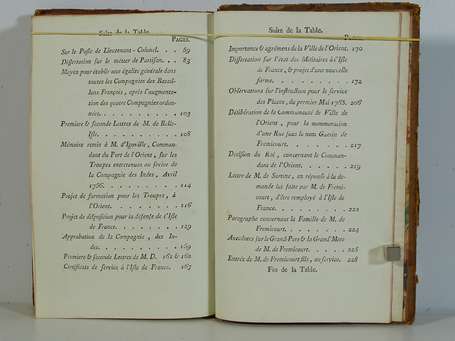 Suite de la Table.
PAGES.
Sur le Poste de Lieutenant-Colonel. . . . 69
Dissertation sur le métier de Partisan. . . 83
Moyen pour établir une égalité générale dans
toutes les Compagnies des Bataillons
François, après l'augmentation
des quatre Compagnies ordonnées.
. . . . 103
Premiere & seconde Lettres de M. de
. . . . 108
Mémoire remis à M. d'Iguville, Commandant
du Port de l'Orient, sur les
Troupes entretenues au service de
la Compagnie des Indes, Avril
1766. . . . 114
Projet de formation pour les Troupes, à
l'Orient. . . . 116
Projet de disposition pour la défense de l'Isle
de France. . . . 129
Approbation de la Compagnie, des Indes.
. . . . 159
Premiere & seconde Lettres de M. D. 161 & 162
Certificats de service à l'Isle de France. 167
Suite de la Table.
PAGES.
Importance & agrémens de la Ville de l'Orient. 170
Dissertation sur l'état des Militaires à l'Isle
de France, & projet d'une nouvelle
forme. . . . 172
Observations sur l'instruction pour le service
des Places, du premier Mai 1768. 208
Délibération de la Communauté de Ville de
l'Orient, pour la nommination
d'une Rue sous le nom Guerin de
Fremicourt. . . . 217
Décision du Roi, concernant le Commandant
de l'Orient. . . . 219
Lettre de M. de Sartine, en réponse à la demande
lui faite par M. de Fremicourt,
d'être employé à l'Isle de
France. . . . 222
Paragraphe concernant la Famille de M. de
Fremicourt. . . . 223
Anecdotes sur la Grand'Pere & la Grand'Mere
de M. de Fremicourt. . . . 226
Entrée de M. de Fremicourt fils, au service. 228
Fin de la Table.